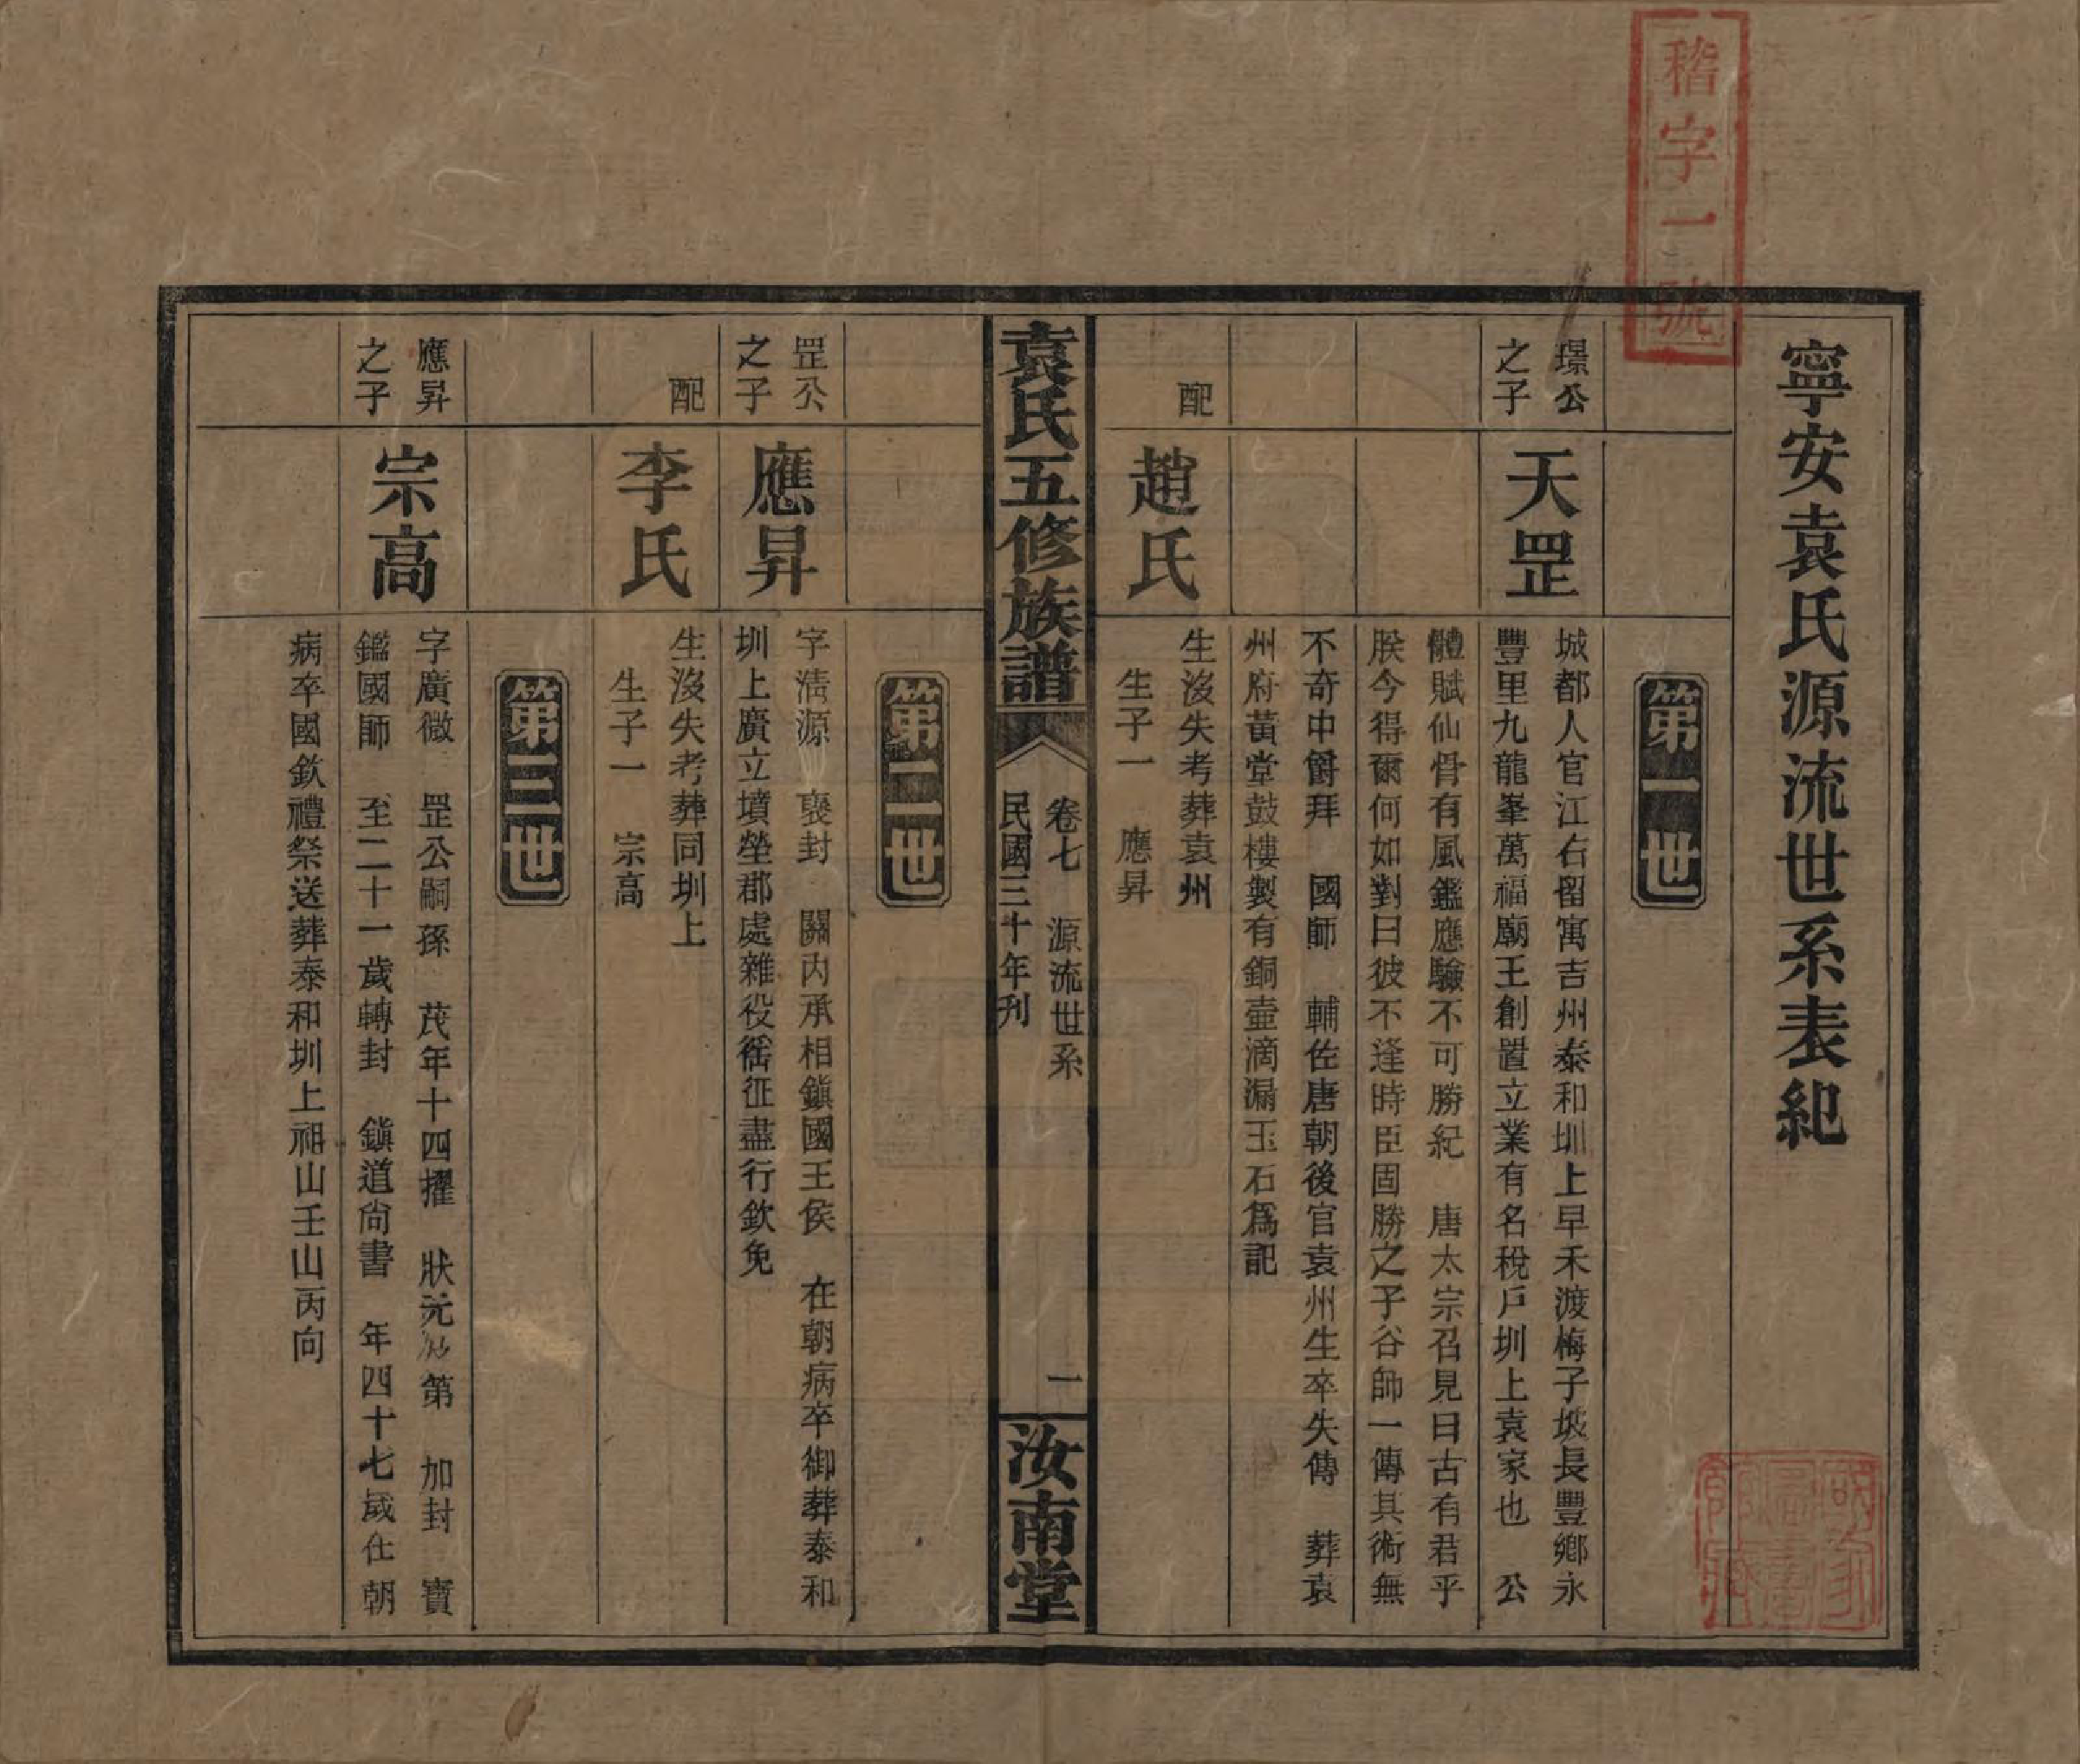 稽字一號
寧安袁氏源流世系表紀
第一世
璟公之子
天罡
城都人官江右留寓吉州泰和圳上早禾渡梅子坡長豐鄉永
豐里九龍峯萬福廟王創置立業有名稅戶圳上袁家也　公
體賦仙骨有風鑑應驗不可勝紀　唐太宗召見曰古有君平
朕今得爾何如對曰彼不逢時臣固勝之子谷師一傳其術無
不奇中爵拜　國師　輔佐唐朝後官袁州生卒失傳　葬袁
州府黃堂鼓樓製有銅壺滴漏玉石爲記
配
趙氏
生沒失考葬袁州
生子一　應昇
袁氏五修族譜
卷七　源流世系
一
民國三十年刊
汝南堂
第二世
罡公之子
應昇
字清源　襃封　關內承相鎭國王侯　在朝病卒御葬泰和
圳上廣立墳塋郡處雜役徭征盡行欽免
配
李氏
生沒失考葬同圳上
生子一　宗高
第三世
應昇之子
宗高
字廣微　罡公嗣孫　茂年十四擢　狀元及第　加封　寶
鑑國師　至二十一歲轉封　鎭道尙書　年四十七歲仕朝
病卒國欽禮祭送葬泰和圳上祖山壬山丙向